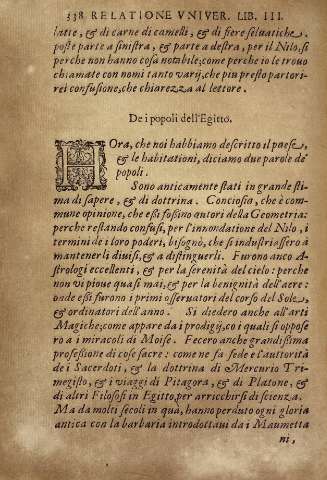 338 RELATIONE VNIVER. LIB. III.
latte, & di carne di cameli, & di fiere seluatiche.
poste parte a sinistra, & parte a destra, per il Nilo. si
perche non hanno cosa notabile; come perche io le trouo
chiamate con nomi tanto varij, che piu presto partori-
rei confusione, che chiarezza al lettore.
De i popoli dell'Egitto.
HOra, che noi habbiamo descritto il paese,
& le habitationi, diciamo due parole de'
popoli.
Sono anticamente stati in grande sti-
ma di sapere, & di dottrina. Conciosia, che è com-
mune opinione, che essi fossino autori della Geometria:
perche restando confusi, per l'innondatione del Nilo, i
termini de i loro poderi, bisognò, che si industriassero a
mantenerli diuisi, & a distinguerli. Furono anco A-
strologi eccellenti, & per la serenità del cielo: perche
non vi pioue quasi mai, & per la benignità dell'aere:
onde essi furono i primi osseruatori del corso del Sole,
& ordinatori dell'anno. Si diedero anche all'arti
Magiche; come appare da i prodigij, co i quali si oppose
ro a i miracoli di Moise. Fecero anche grandissima
professione di cose sacre: come ne fa fede e l'auttorità
de i Sacerdoti, & la dottrina di Mercurio Tri-
megisto, & i viaggi di Pitagora, & di Platone, &
di altri Filosofi in Egitto, per arricchirsi di scienza.
Ma da molti secoli in quà, hanno perduto ogni gloria
antica con la barbaria introdottaui da i Maumetta
ni,